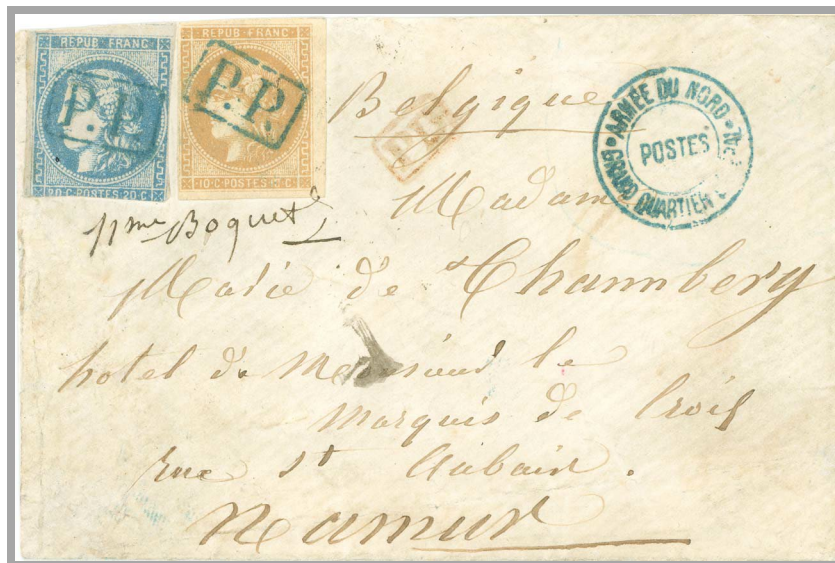 REPUB · FRANC
P.P.
20·C·POSTES·20·C
REPUB · FRANC
P.P.
10·C·POSTES
ARMÉE DU NORD
POSTES
GRAND QUARTIER
Belgique
Madame
Mme Boquet
Marie de Chambery
hotel de le
Marquis de Croix
rue st Aubain.
Namur